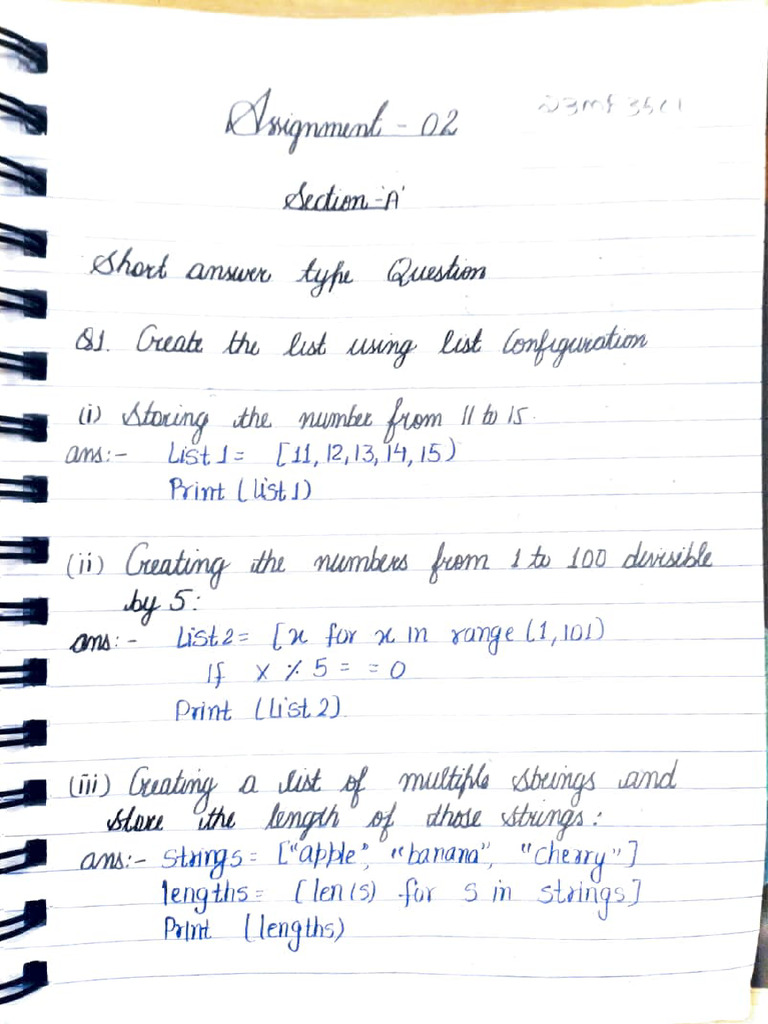 Assignment - 02
Section-'A'
Short answer type Question
Q1. Create the list using list Configuration
(i) Storing the number from 11 to 15.
ans:- List 1 = [11, 12, 13, 14, 15)
Print (list 1)
(ii) Creating the numbers from 1 to 100 devisible
by 5:
ans:- List 2 = [x for x in range (1, 101)
If x % 5 = = 0
Print (List 2)
(iii) Creating a list of multiple strings and
store the length of those strings:
ans:- strings = ["apple", "banana", "cherry"]
lengths = [len(s) for s in strings]
Print (lengths)